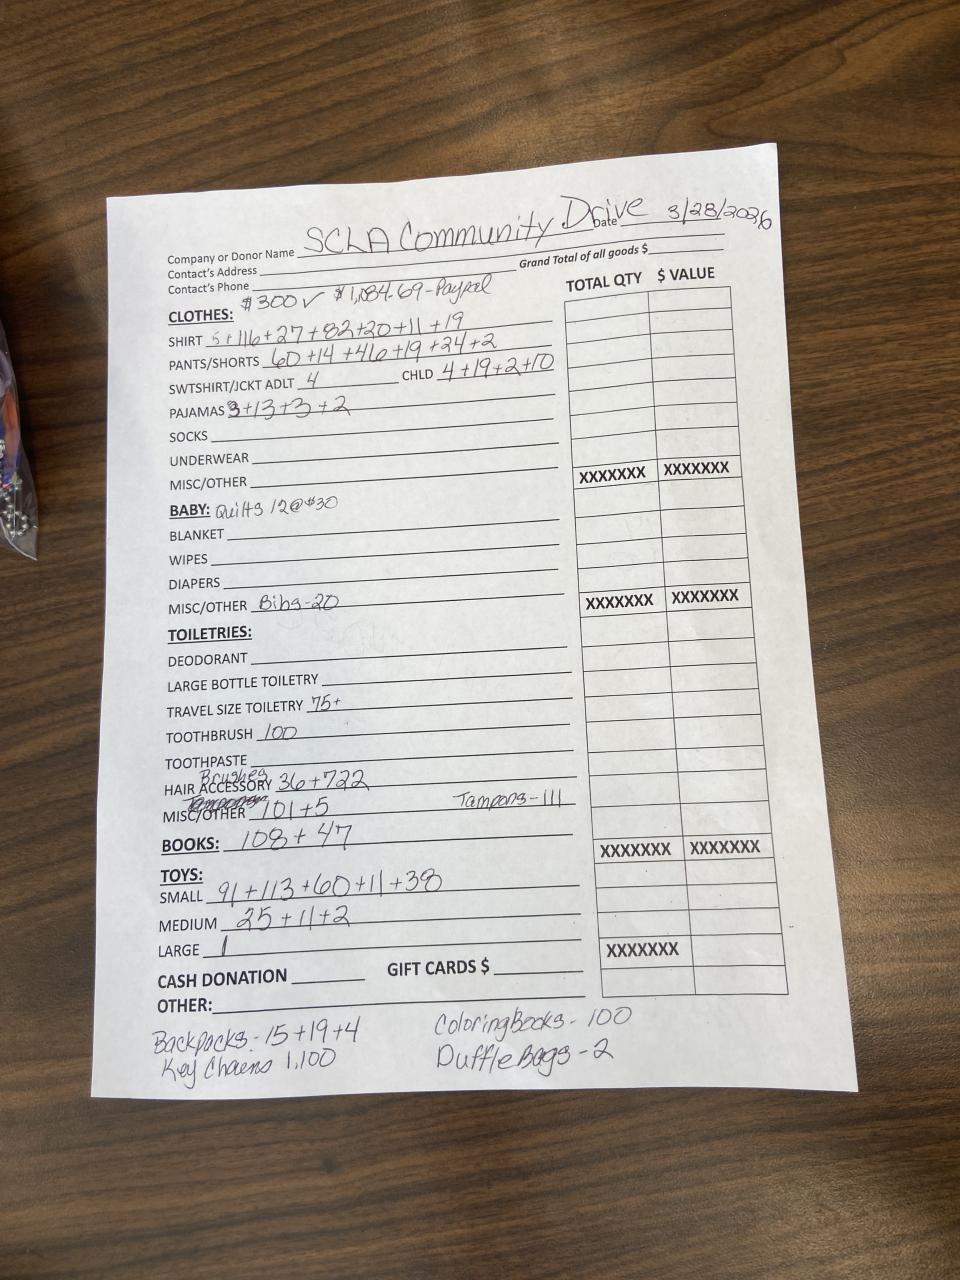 Company or Donor Name SCLA Community Drive Date 3/28/2026
Contact's Address Grand Total of all goods $
Contact's Phone
$300 ✓ $1,084.69-Paypal TOTAL QTY $ VALUE
CLOTHES:
SHIRT 5+116+27+82+20+11+19
PANTS/SHORTS 60+14+46+19+24+2
SWTSHIRT/JCKT ADLT 4 CHLD 4+19+2+10
PAJAMAS 3+13+3+2
SOCKS
UNDERWEAR
MISC/OTHER XXXXXXX XXXXXXX
BABY: Quilts 12@$30
BLANKET
WIPES
DIAPERS
MISC/OTHER Bibs-20 XXXXXXX XXXXXXX
TOILETRIES:
DEODORANT
LARGE BOTTLE TOILETRY
TRAVEL SIZE TOILETRY 75+
TOOTHBRUSH 100
TOOTHPASTE
Brushes
HAIR ACCESSORY 36+722
MISC/OTHER 101+5 Tampons-111
BOOKS: 108+47 XXXXXXX XXXXXXX
TOYS:
SMALL 91+113+60+11+38
MEDIUM 25+11+2
LARGE 1 XXXXXXX
CASH DONATION GIFT CARDS $
OTHER:
Backpacks-15+19+4 Coloring Books-100
Key Chaens 1,100 Duffle Bags-2